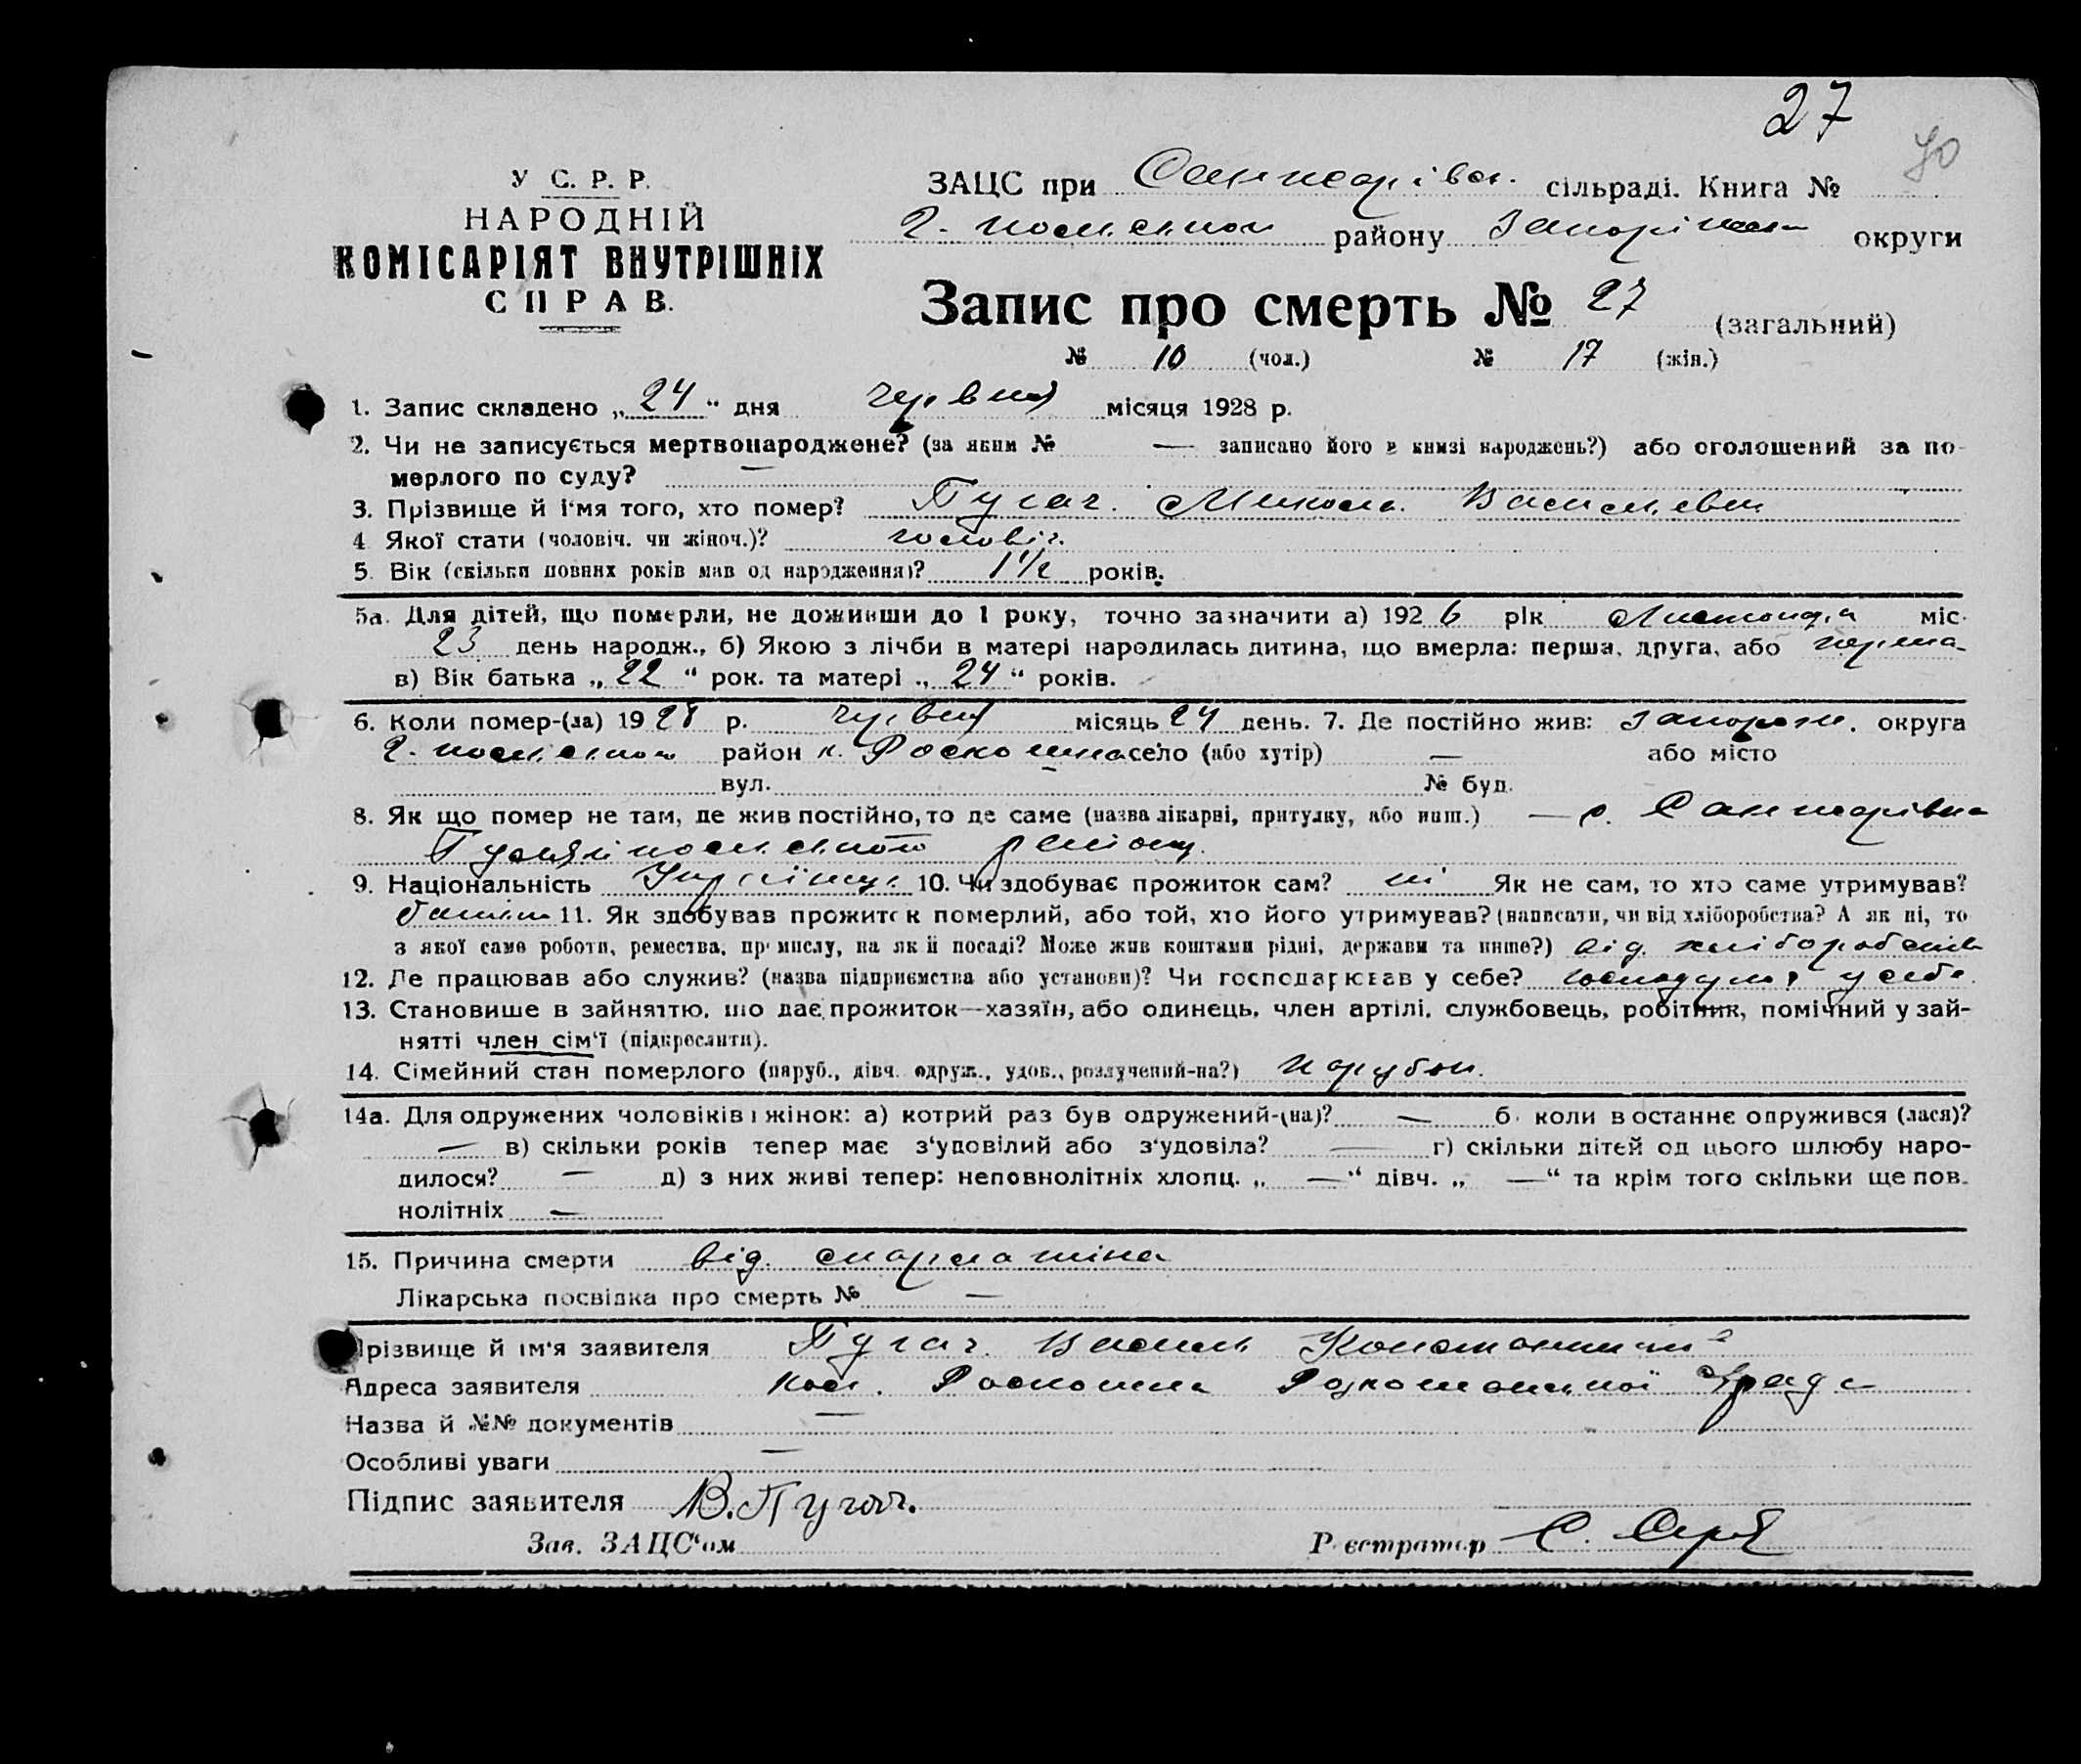 27
40
У С. Р. Р.
НАРОДНІЙ
КОМІСАРІЯТ ВНУТРІШНІХ
СПРАВ.
ЗАЦС при Санжарівск. сільраді. Книга №
району Запоріжск округи
Запис про смерть № 27 (загальний)
№ 10 (чол.) № 17 (жін.)
1. Запис складено „ 24 “ дня червня місяця 1928 р.
2. Чи не записується мертвонароджене? (за яким № — записано його в книзі народжень?) або оголошений за по-
мерлого по суду? —
3. Прізвище й ім‘мя того, хто помер? Пугач. Микола. Васильевич
4 Якої стати (чоловіч. чи жіноч.)? чоловіч.
5. Вік (скільки повних років мав од народження)? 1 1/2 років.
5а. Для дітей, що померли, не доживши до 1 року, точно зазначити а) 192 6 рік Листопада міс.
23 день народж., б) Якою з лічби в матері народилась дитина, що вмерла: перша, друга, або перша
в) Вік батька „ 22 “ рок. та матері „ 24 “ років.
6. Коли помер-(ла) 19 28 р. червня місяць 24 день. 7. Де постійно жив: Запорізк. округа
район к. Роскошна село (або хутір) — або місто
вул. — № буд.
8. Як що помер не там, де жив постійно, то де саме (назва лікарні, притулку, або инш.) — с. Санжарівка
Гуляйпольського району.
9. Національність Українец 10. Чи здобуває прожиток сам? ні Як не сам, то хто саме утримував?
батько 11. Як здобував прожиток померлий, або той, хто його утримував? (написати, чи від хліборобства? А як ні, то
з якої саме роботи, ремества, промислу, на якій посаді? Може жив коштами рідні, держави та инше?) від хліборобства
12. Де працював або служив? (назва підприємства або установи)? Чи господарював у себе? у себе.
13. Становище в зайняттю, що дає прожиток—хазяїн, або одинець, член артілі, службовець, робітник, помічний у зай-
нятті член сім‘ї (підкреслити).
14. Сімейний стан померлого (паруб., дівч. одруж., удов., розлучений-на?) парубок.
14а. Для одружених чоловіків і жінок: а) котрий раз був одружений-(на)? — б. коли в останнє одружився (лася)?
— в) скільки років тепер має з‘удовілий або з‘удовіла? — г) скільки дітей од цього шлюбу наро-
дилося? — д) з них живі тепер: неповнолітніх хлопц. „ — “ дівч. „ — “ та крім того скільки ще пов-
нолітніх —
15. Причина смерти від. скарлатіна
Лікарська посвідка про смерть № —
Прізвище й ім‘я заявителя Пугач. Василь Константин
Адреса заявителя кол. Роскошна
Назва й №№ документів —
Особливі уваги —
Підпис заявителя В. Пугач.
Зав. ЗАЦС‘ом Реєстратор